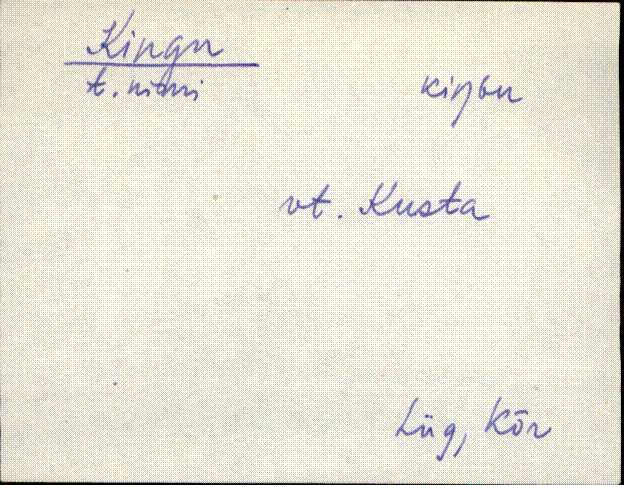 Kingu
t. nimi
kiŋɢu
vt. Kusta
Lüg, Kõr